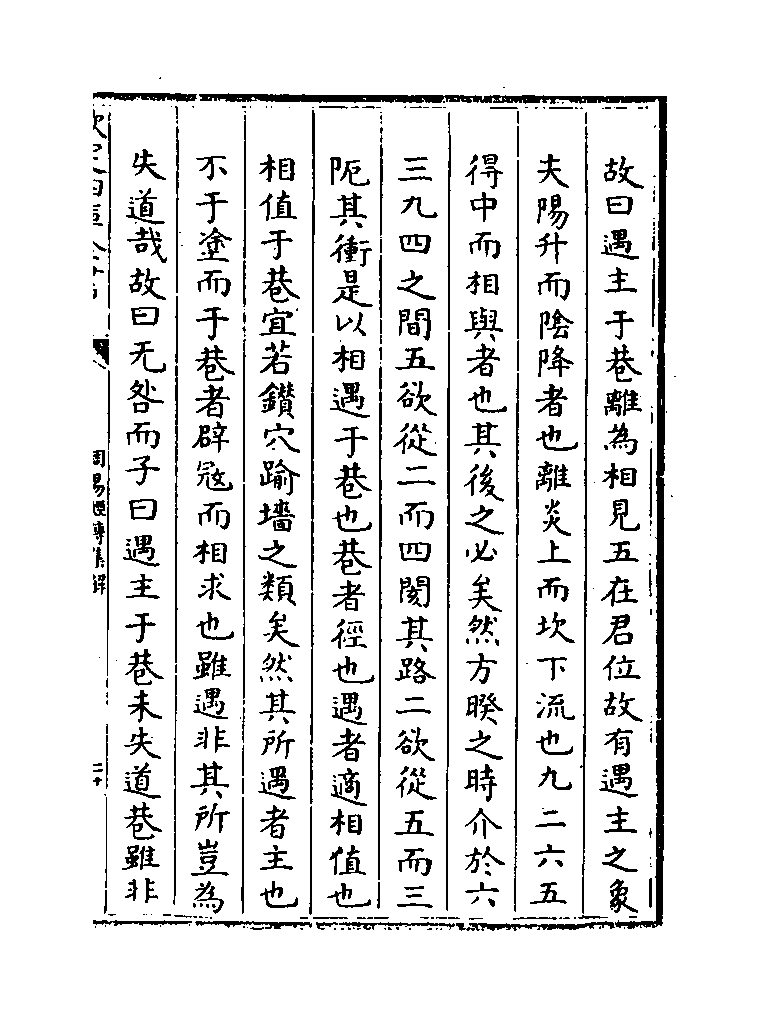 故曰遇主于巷離為相見五在君位故有遇主之象
夫陽升而陰降者也離炎上而坎下流也九二六五
得中而相與者也其後之必矣然方暌之時介於六
三九四之間五欲從二而四閡其路二欲從五而三
阨其衝是以相遇于巷也巷者徑也遇者適相值也
相值于巷宜若鑽穴踰墻之類矣然其所遇者主也
不于塗而于巷者辟宼而相求也雖遇非其所豈為
失道哉故曰无咎而子曰遇主于巷未失道巷雖非
周易經傳集解